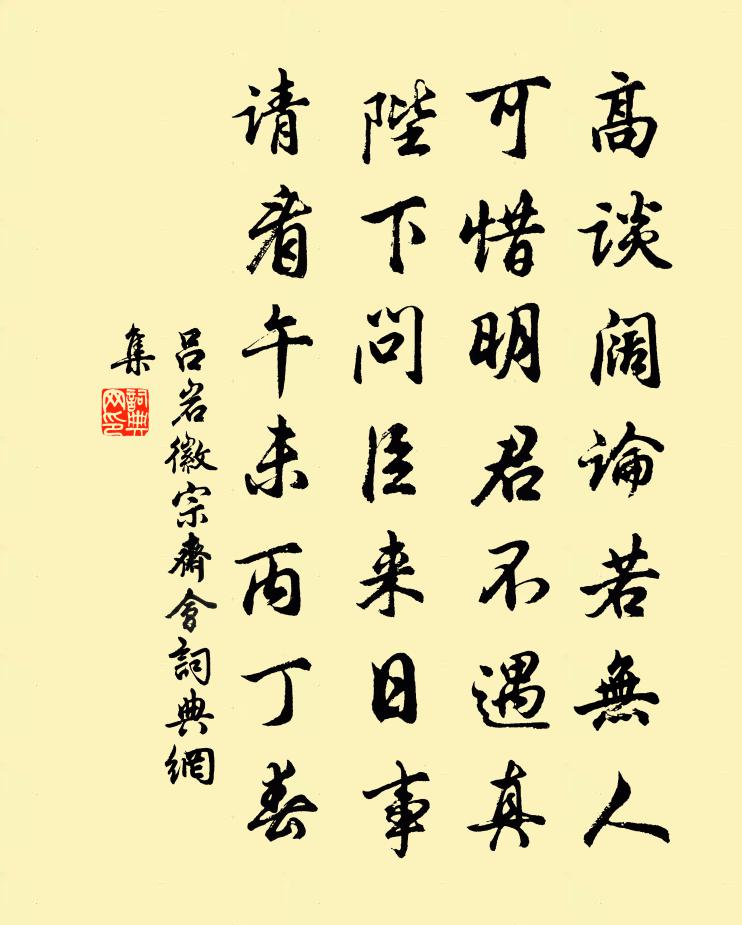 高谈阔論若無人
可惜明君不遇真
陛下問臣来日事
请看午未丙丁春
吕岩徽宗齋會詞典網
集
詞典
网印